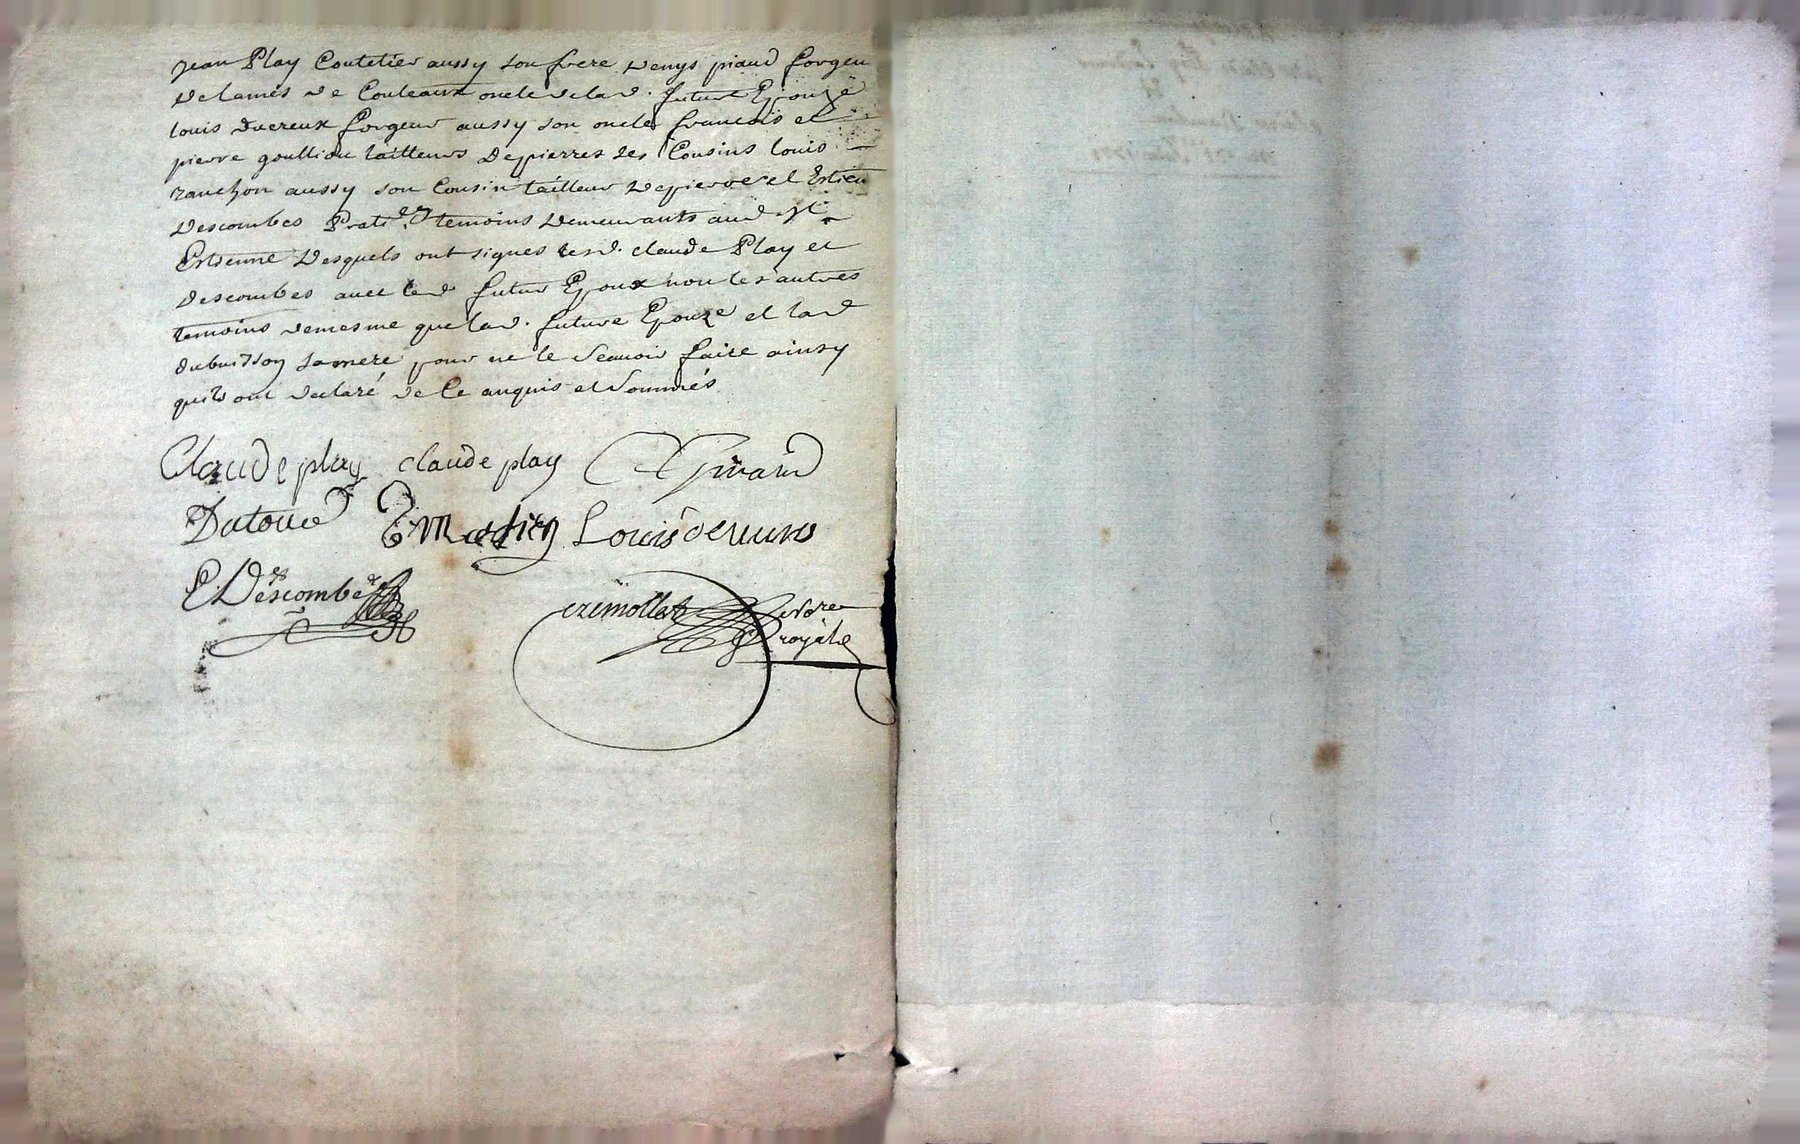 Jean Play Coutelier aussy son frere Denys piaud forgeu
de lames de Couteaux oncle de lad. future Epouze
louis ducreux forgeur aussy son oncle francois et
pierre goulliou tailleurs de pierres ses Cousins louis
ranchon aussy son Cousin tailleur de pierres et Estien
Descombes Prati.en temoins demeurants aud. St.
Estienne desquels ont signes lesd. claude Play et
Descombes avec led futur Epoux non les autres
temoins de mesme que lad. future Epouze et lad
dubuisson sa mere pour ne le scavoir faire ainsy
quils ont declaré de ce enquis et sommés
Claude play claude play Girard
Dutour Mathien Louis
E. Descombes
crimollet no.re
royal